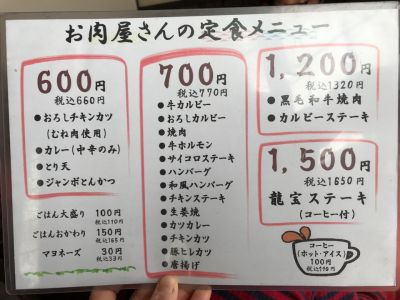 お肉屋さんの定食メニュー
600円
税込660円
●おろしチキンカツ
(むね肉使用)
●カレー(中辛のみ)
●とり天
●ジャンボとんかつ
ごはん大盛り 100円
税込110円
ごはんおかわり 150円
税込165円
マヨネーズ 30円
税込33円
700円
税込770円
●牛カルビー
●おろしカルビー
●焼肉
●牛ホルモン
●サイコロステーキ
●ハンバーグ
●和風ハンバーグ
●チキンステーキ
●生姜焼
●カツカレー
●チキンカツ
●豚ヒレカツ
●唐揚げ
1,200円
税込1320円
●黒毛和牛焼肉
●カルビーステーキ
1,500円
税込1650円
龍宝ステーキ
(コーヒー付)
コーヒー
(ホット・アイス)
100円
税込110円